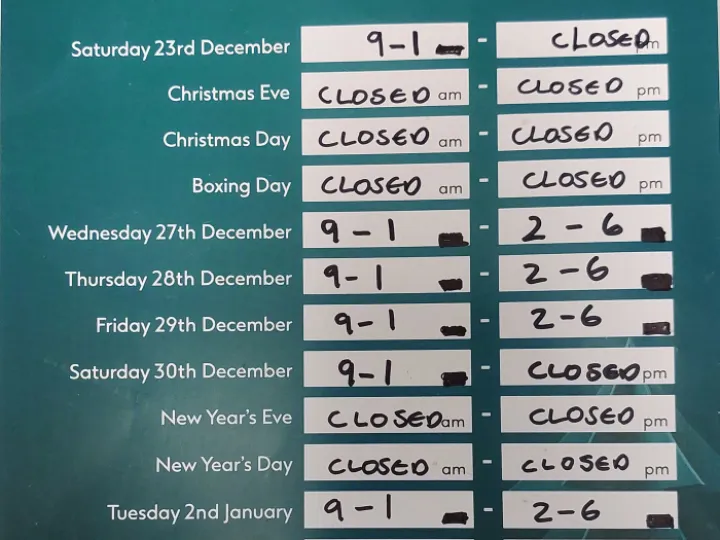 Saturday 23rd December 9-1 - CLOSED pm
Christmas Eve CLOSED am - CLOSED pm
Christmas Day CLOSED am - CLOSED pm
Boxing Day CLOSED am - CLOSED pm
Wednesday 27th December 9-1 - 2-6
Thursday 28th December 9-1 - 2-6
Friday 29th December 9-1 - 2-6
Saturday 30th December 9-1 - CLOSED pm
New Year's Eve CLOSED am - CLOSED pm
New Year's Day CLOSED am - CLOSED pm
Tuesday 2nd January 9-1 - 2-6